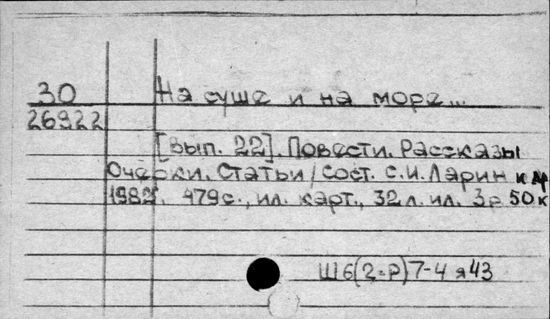 30 На суше и на море...
26922
[вып. 22]. Повести. Рассказы
Очерки. Статьи / сост. С.И. Ларин и др
1982. 479 с., ил. карт., 32 л. ил. 3р 50к
Ш6(2=Р)7-4 я43